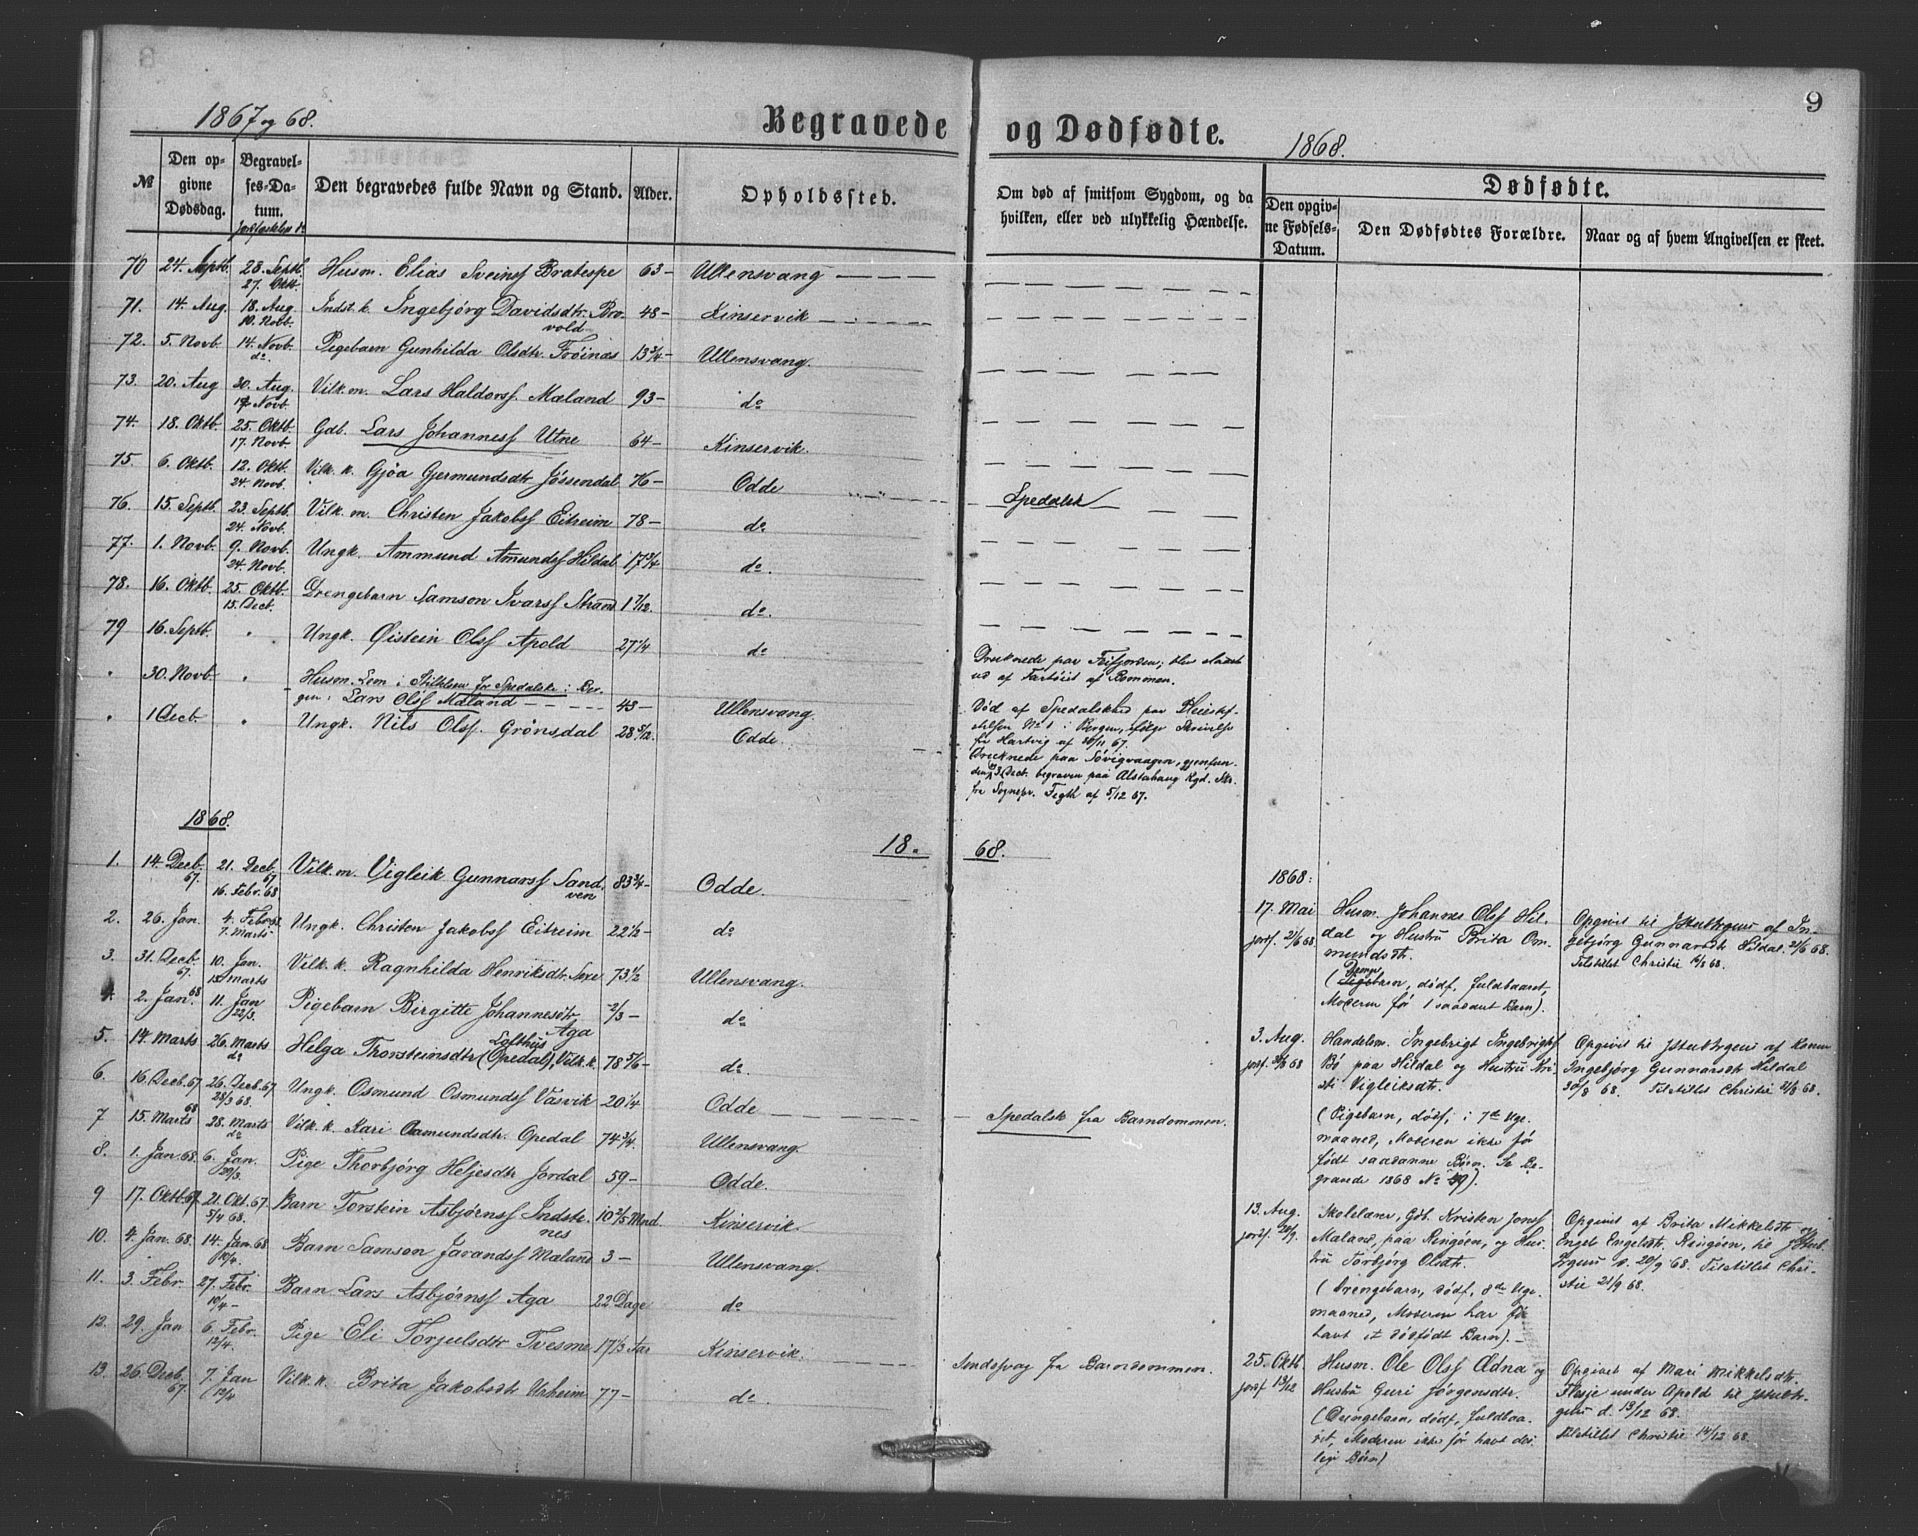 1867 og 68.
Begravede
№
Den op-
givne
Dødsdag.
Begravel-
ses-Da-
tum.
Den begravedes fulde Navn og Stand.
Alder.
Opholdssted.
70 24. Septb. 28. Septb. Husm. Elias Sveinss 63 – Ullensvang
27. Oktb.
71. 14. Aug. 18. Aug. Indst. k. Ingebjørg Davidsdtr. Bro- 48 – Kinservik
10. Novb. vold
72. 5. Novb. 14. Novb. Pigebarn Gunhilda Olsdtr. Frøinæs 13 3/4 – Ullensvang.
do
73. 20. Aug 30. Aug. Vilk. m. Lars Haldorss. Mæland 93 – do
Novb.
74. 18. Oktb. 25. Oktb. Gdb. Lars Johanness Utne 64 – Kinservik.
17. Novb
75. 6. Oktb. 12. Oktb. Vilk. k. Gjøa Gjermundsdtr Jøssendal 76 – Odde
24. Novb.
76. 15. Septb. 23. Septb. Vilk. m. Christen Jakobss Eitreim 78 – do
24. Novb.
77. 1. Novb. 9. Novb. Ungk. Ammund Amundss Hildal 17 3/4 do.
24. Novb.
78. 16. Oktb. 25. Oktb. Drengebarn Samson Ivarss Strand 1 7/12. do.
15. Decb.
79 16. Septb. " Ungk. Øistein Olss Apold 27 1/4 do
" 30. Novb. " Husm. Lem i Stiftelsen for Spedalske i Ber-
gen: Lars Olss Mæland 43 – Ullensvang.
" 1 Decb. " Ungk. Nils Olss. Grønsdal 28 5/12. Odde.
1868.
18.
1. 14. Decb. 67. 21. Decb. 67 Vilk. m. Vigleik Gunnarss Sand- 83 3/4 – Odde.
16. Febr. 68 ven
2. 26. Jan. 4. Febr. Ungk. Christen Jakobss Eitreim 22 1/2 – do
7. Marts
3. 31. Decb. 67. 10. Jan. Vilk. k. Ragnhilda Henriksdtr. Sexe 73 1/2 Ullensvang.
Marts
4. 2. Jan. 68 11. Jan Pigebarn Birgitte Johannesdtr 2/3 – do
22/3. Aga
5. 14. Marts 26. Marts Helga Thorsteinsdtr (Opedal), Vilk. k. 78 5/6 – do.
do Lofthus
6. 16. Decb. 67. 26. Decb. 67 Ungk. Osmund Osmundss Vasvik 20 1/4 Odde
28/3 68.
7 15. Marts 68 28. Marts Vilk. k. Kari Aamundsdtr. Opedal 74 3/4. Ullensvang.
do
8. 1. Jan. 68 6. Jan. Pige Thorbjørg Heljesdtr Jordal 59 – Odde.
29/3.
9 17. Oktb. 67. 21. Okt. 67 Barn Torstein Asbjørnss Indste- 10 2/5 Mnd. Kinservik.
5/4 68. nes
10. 4. Jan. 68. 14. Jan. 68 Barn Samson Mæland 3 – Ullensvang.
10/4.
11. 3. Febr. 27. Febr. Barn Lars Asbjørnss Aga 22 Dage do
10/4 –
12. 29. Jan 6. Febr. Pige Eli Torjulsdtr Tvesme 17 1/3 Aar Kinservik.
12/4.
13. 26. Decb. 67. 7. Jan Vilk. k. Brita Jakobsdtr Urheim 77 – do.
(12/4
9
og Dødfødte.
1868.
Om død af smitsom Sygdom, og da
hvilken, eller ved ulykkelig Hændelse.
Dødfødte.
Den opgiv-
ne Fødsels-
Datum.
Den Dødfødtes Forældre.
Naar og af hvem Angivelsen er skeet.
Spedalsk
Druknede paa; blev slaaet
ud af Fartøiet af Bommen.
Død af Spedalskhed paa Pleiestif-
telsen No 1 i Bergen, ifølge Skrivelse
fra Hartvig af 30/11 67.
Druknede paa Søvigvaagen, gjenfun-
den 3. Decb. begraven paa Alstahaug Kgd. Skr.
fra Sognepr. af 5/12 67.
68.
Spedalsk fra Barndommen.
Sindssvag fra Barndommen.
1868.
17. Mai
jordf. 21/6 68.
Husm. Johannes Olss Hil-
dal og Hustru Brita Om-
mundsdtr.
(Drenge
Pigebarn, dødf., fuldbaaret,
Moderen før 1 saadant Barn).
Opgivet til af In-
gebjørg Gunnarsdtr Hildal 21/6 68.
Tilstillet Christie 68.
3. Aug.
jordf. 68
Handelsm. Ingebrigt Ingebrigtss
Bø paa Hildal og Hustru Kri-
sti Vigleiksdtr.
(Pigebarn, dødf. i 7de Uge-
maaned, Moderen ikke før
født saadanne Børn. Se Be-
gravede 1868 No 49).
Opgivet til af Konen
Ingebjørg Gunnarsdtr Hildal
30/8 68. Tilstillet Christie 68.
13. Aug.
jordf. 20/9.
Skolelærer, Gdb. Kristen Jonss
Mæland, paa Ringøen, og Hus-
tru Torbjørg Olsdtr.
(Drengebarn, dødf., 8de Uge-
maaned, Moderen har før
havt et dødfødt Barn). –
Opgivet af Brita Mikkelsdtr og
Engel Engelsdtr. Ringøen, til
d. 20/9 68. Tilstillet Chri-
stie 21/9 68.
25. Oktb.
jordf. 13/12
Husm. Ole Olss Ædna og
Hustru Guri Jørgensdtr.
(Drengebarn, dødf., fuldbaa-
ret, Moderen ikke før havt des-
lige Børn)
Opgivet af Mari Mikkelsdtr.
Flesje under Apold til
d. 13/12 68.
Tilstillet Christie 14/12 68.